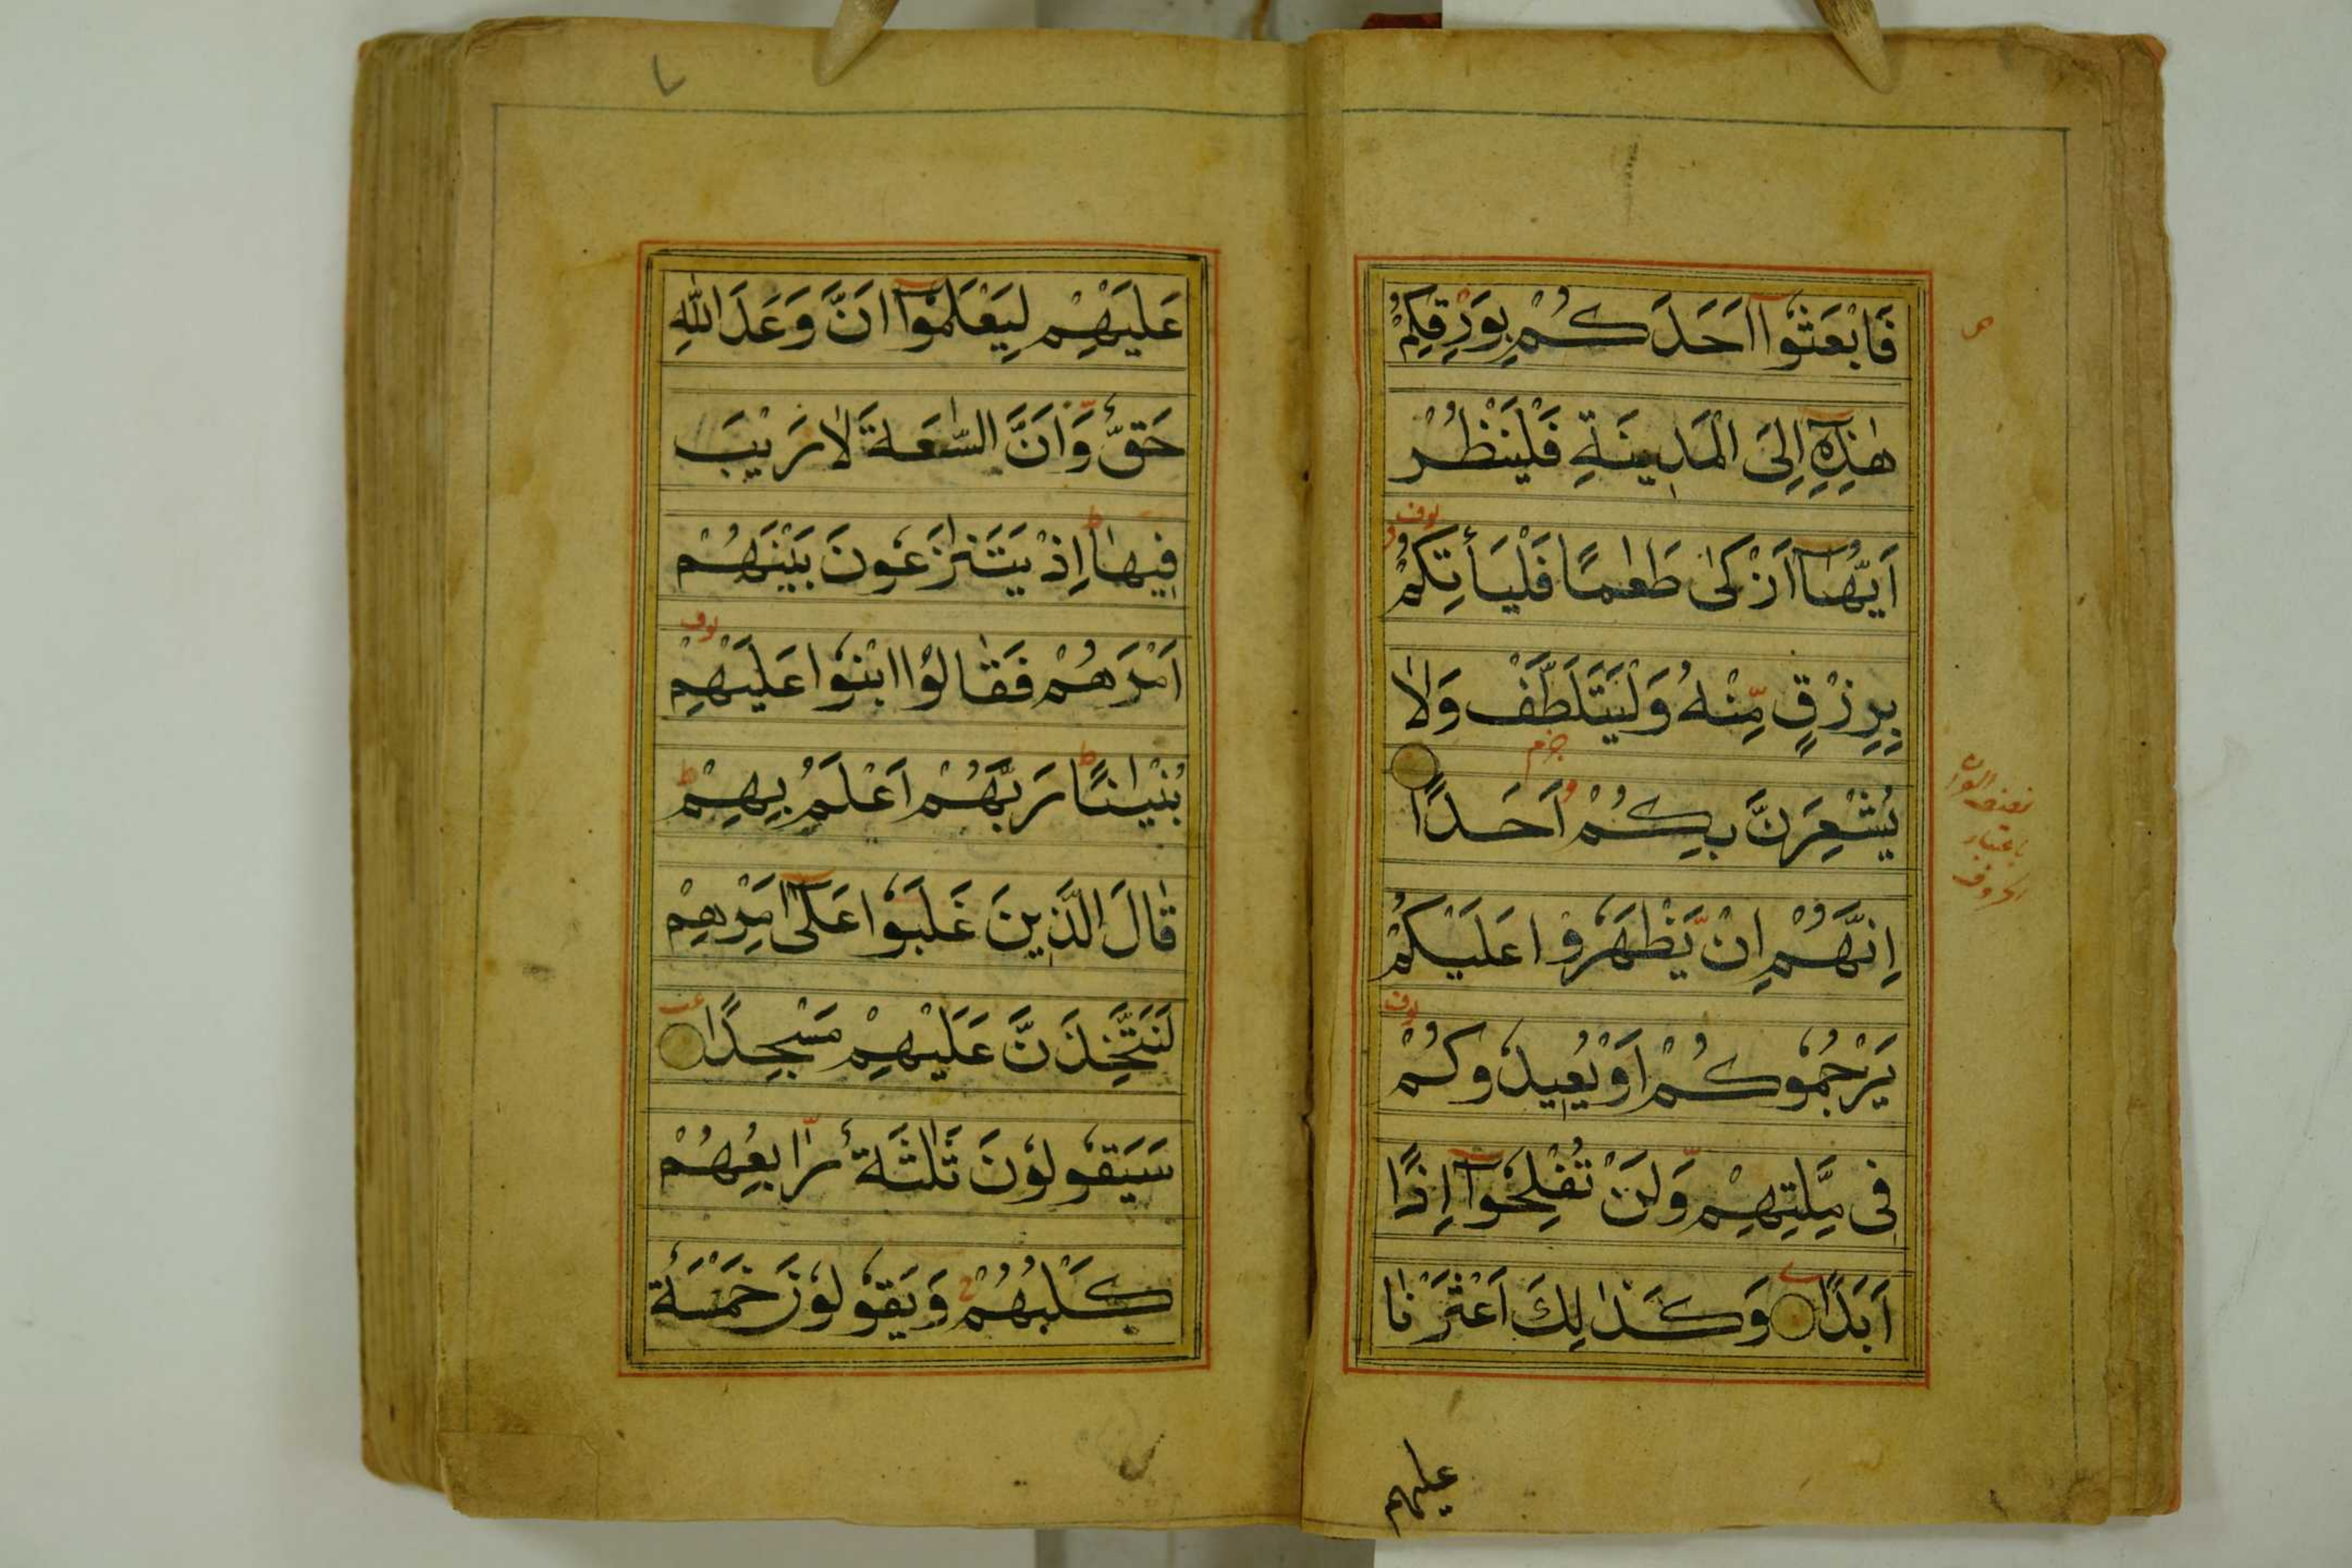 فَابْعَثُوٓا اَحَدَكُمْ بِوَرِقِكُمْ
هٰذِهٖٓ اِلَى الْمَدِيْنَةِ فَلْيَنْظُرْ
اَيُّهَآ اَزْكٰى طَعَامًا فَلْيَأْتِكُمْ
بِرِزْقٍ مِّنْهُ وَلْيَتَلَطَّفْ وَلَا
يُشْعِرَنَّ بِكُمْ اَحَدًا
اِنَّهُمْ اِنْ يَّظْهَرُوْا عَلَيْكُمْ
يَرْجُمُوْكُمْ اَوْ يُعِيْدُوْكُمْ
فِى مِلَّتِهِمْ وَلَنْ تُفْلِحُوْٓا اِذًا
اَبَدًا وَكَذٰلِكَ اَعْثَرْنَا
عليهم
نصف القران
باعتبار
الحروف
عَلَيْهِمْ لِيَعْلَمُوْٓا اَنَّ وَعَدَ اللّٰهِ
حَقٌّ وَّاَنَّ السّٰعَةَ لَا رَيْبَ
فِيْهَا اِذْ يَتَنٰزَعُوْنَ بَيْنَهُمْ
اَمْرَهُمْ فَقَالُوا ابْنُوْا عَلَيْهِمْ
بُنْيٰنًا رَبُّهُمْ اَعْلَمُ بِهِمْ
قَالَ الَّذِيْنَ غَلَبُوْا عَلٰٓى اَمْرِهِمْ
لَنَتَّخِذَنَّ عَلَيْهِمْ مَسْجِدًا
سَيَقُوْلُوْنَ ثَلٰثَةٌ رَّابِعُهُمْ
كَلْبُهُمْ وَيَقُوْلُوْنَ خَمْسَةٌ